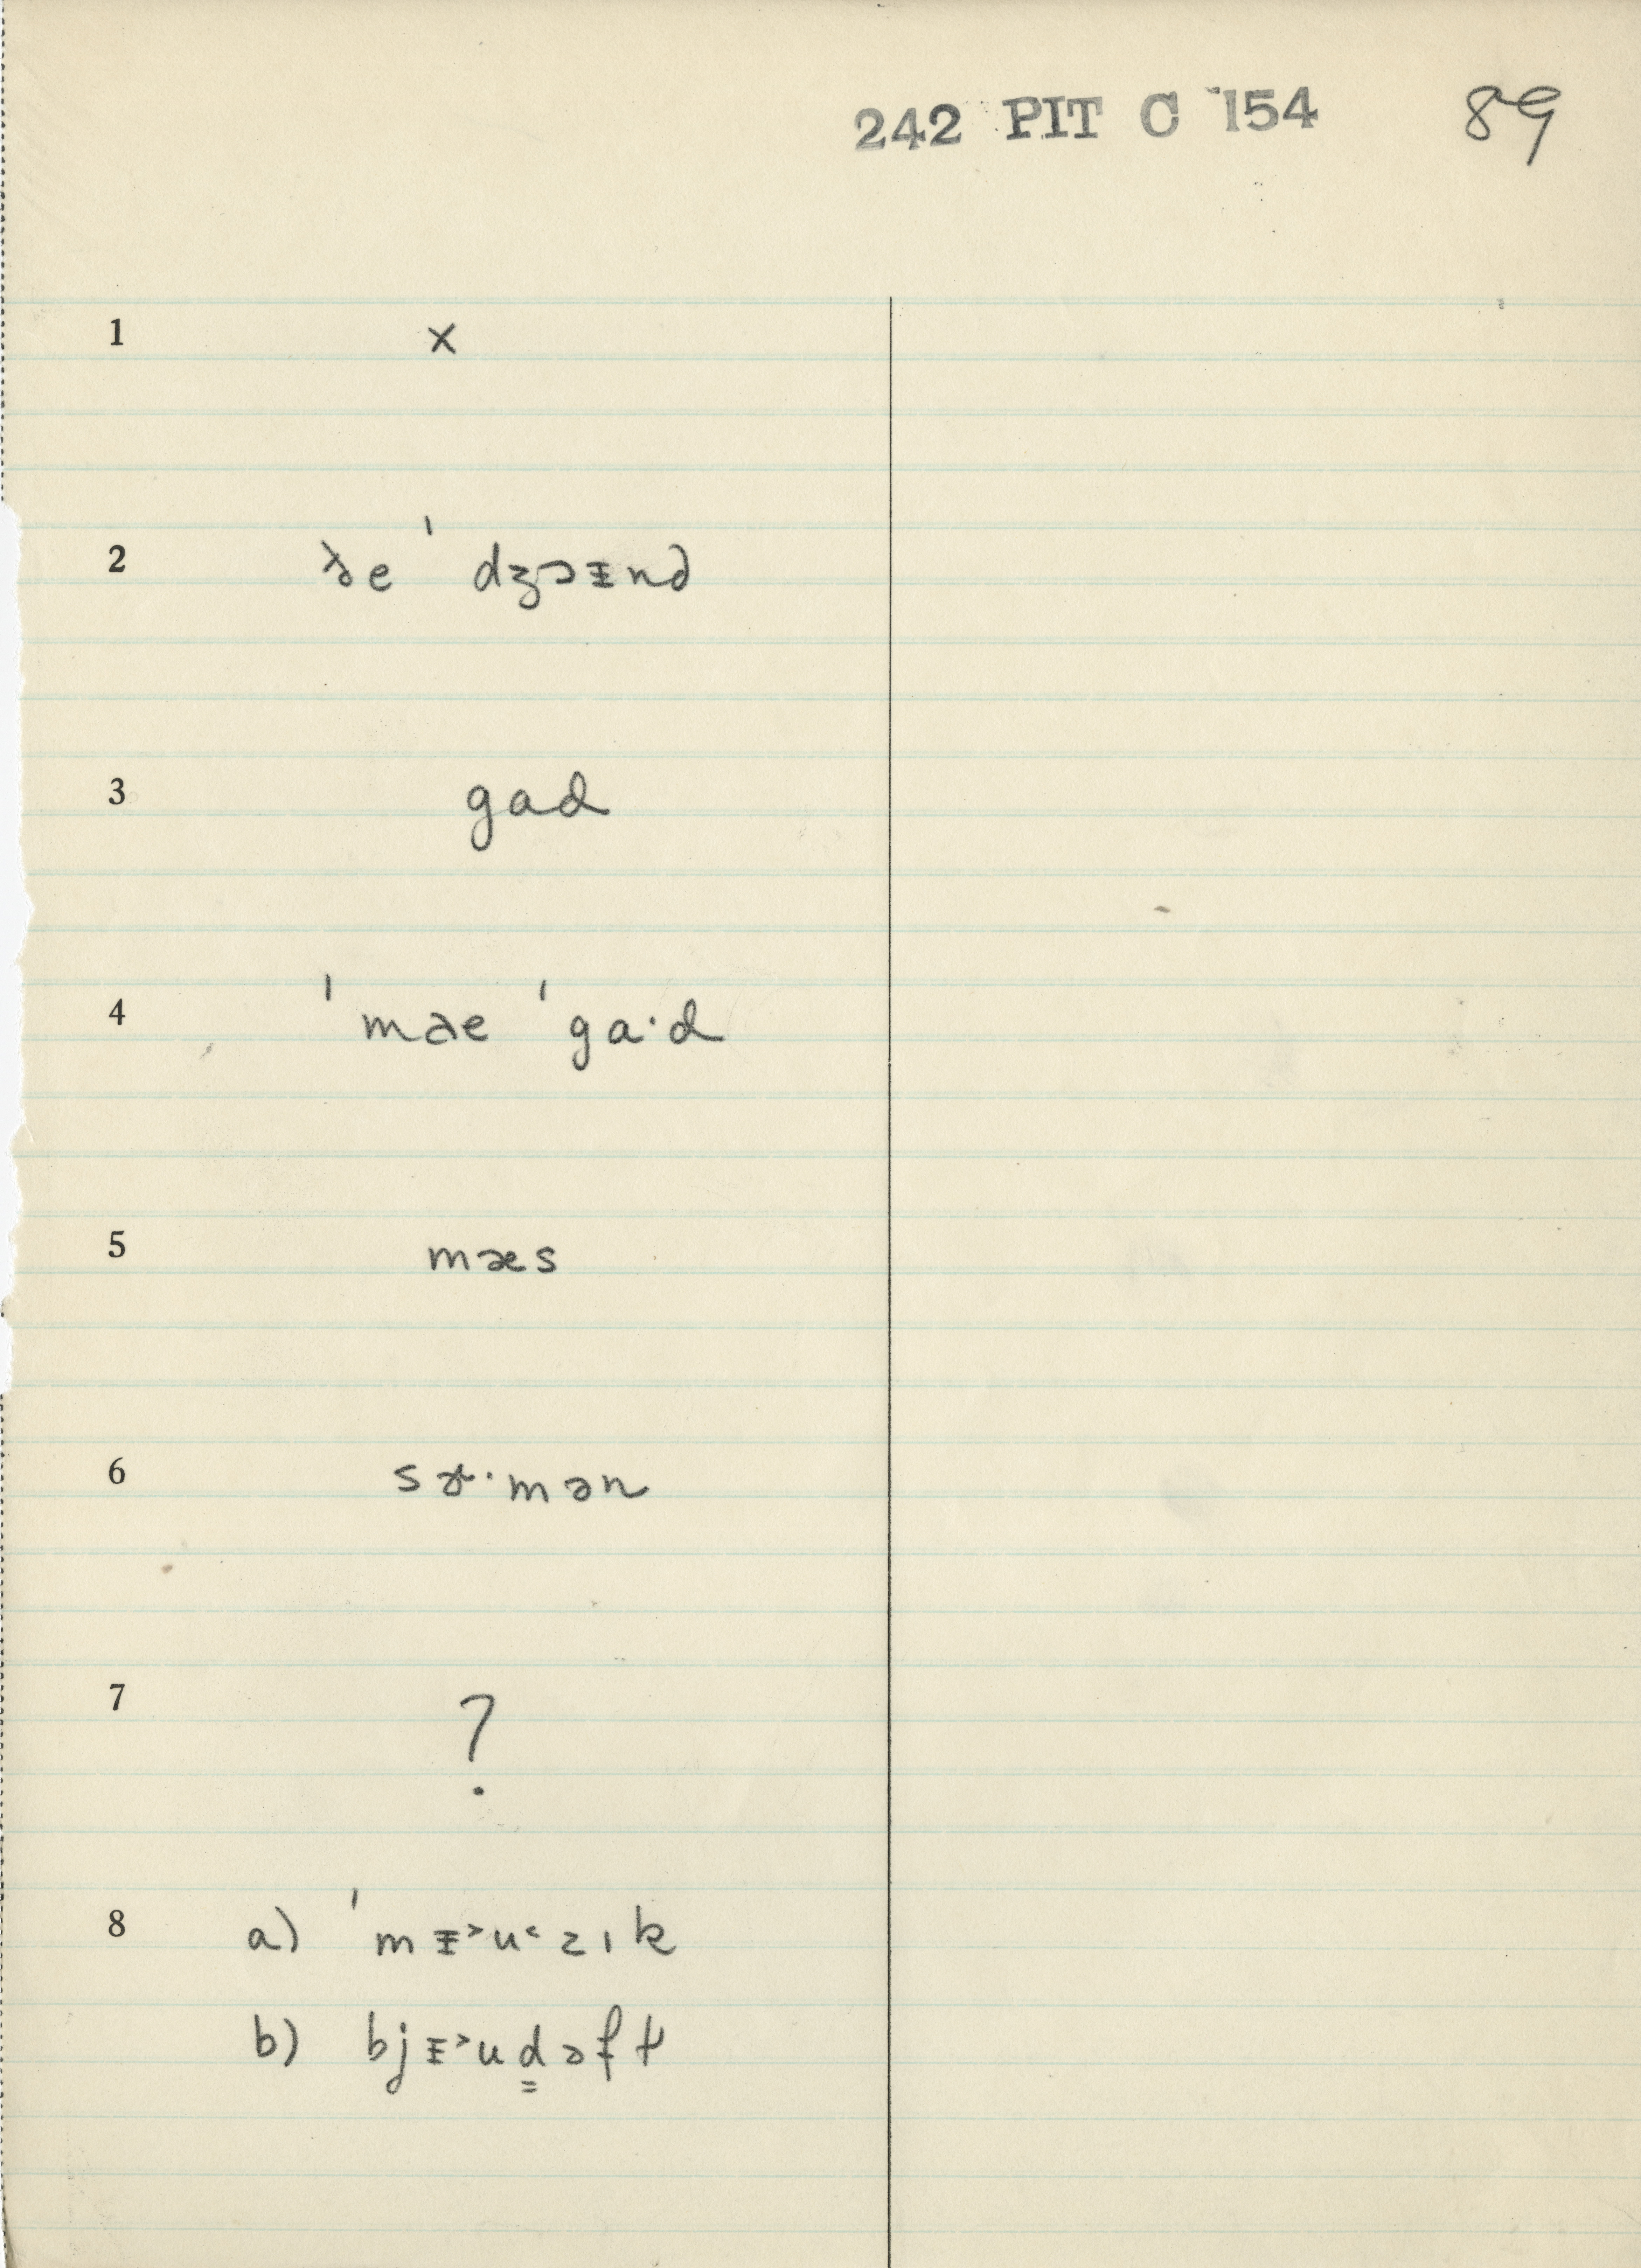 242 PIT C 154 89
1 x
2 ðe ˈ dʒɔᵻnd
3 gad
4 ˈmae ˈga·d
5 mæs
6 sɚ·mən
7 ?
8 a) ˈmᵻ˃u˂zık
b) bjᵻ˃ud̳əft